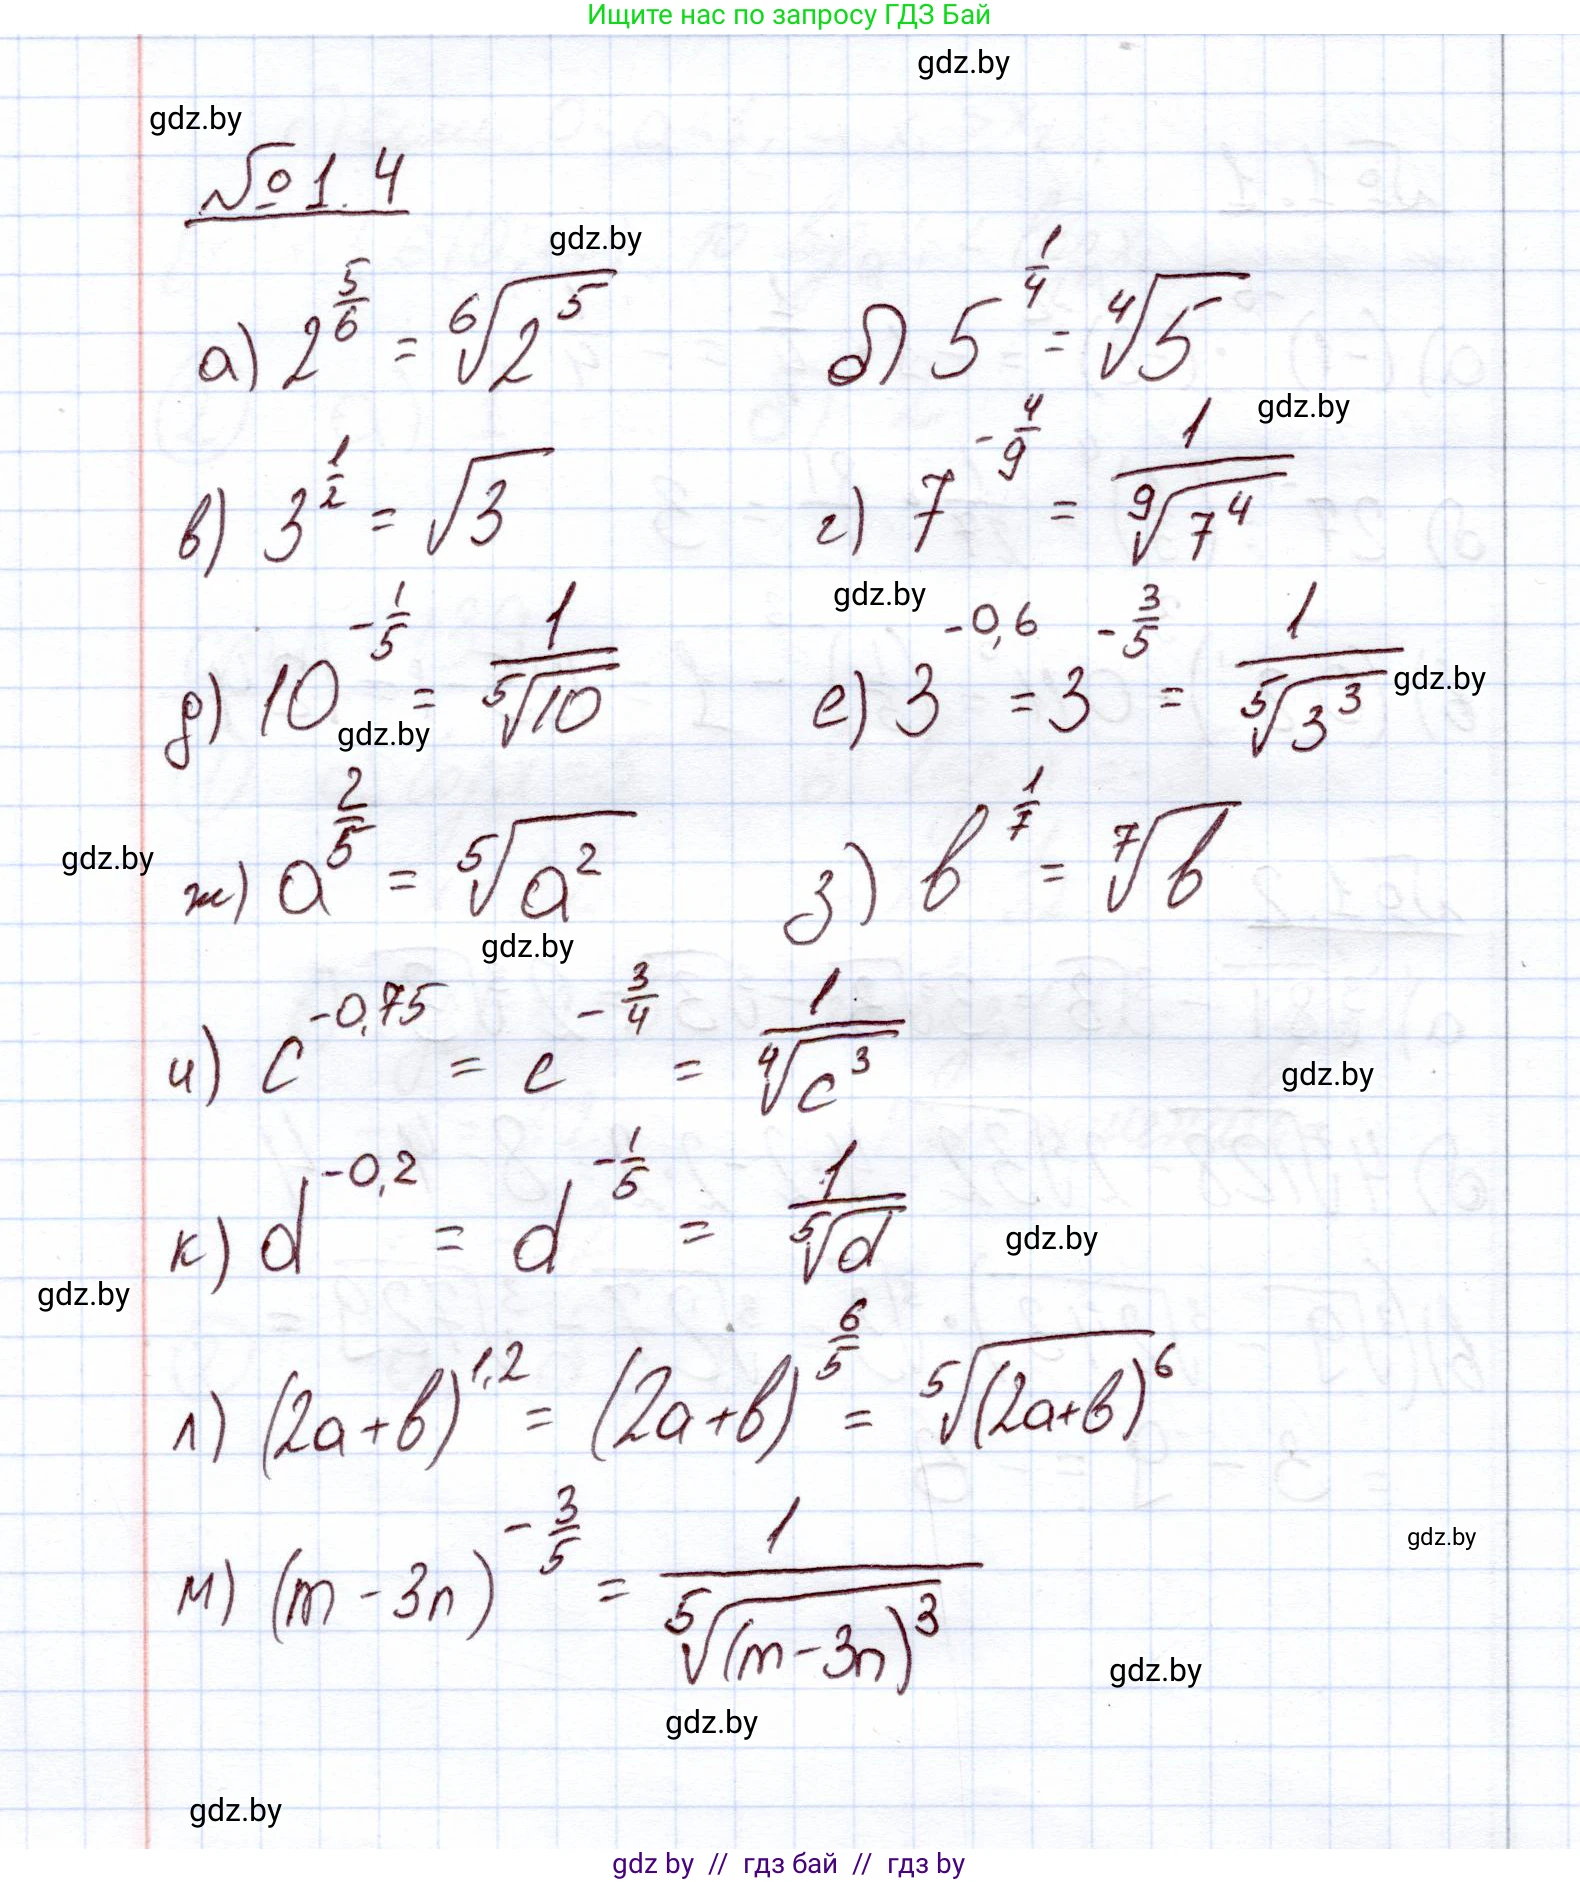 Ищите нас по запросу ГДЗ Бай
gdz.by
gdz.by
№ 1.4
gdz.by
а) 2^(5/6) = ⁶√(2^5) б) 5^(1/4) = ⁴√5
gdz.by
в) 3^(1/2) = √3 г) 7^(-4/9) = 1/⁹√(7^4)
gdz.by
д) 10^(-1/5) = 1/⁵√10 е) 3^(-0,6) = 3^(-3/5) = 1/⁵√(3^3)
gdz.by
gdz.by
ж) a^(2/5) = ⁵√(a^2) з) b^(1/7) = ⁷√b
gdz.by
gdz.by
и) c^(-0,75) = c^(-3/4) = 1/⁴√(c^3)
gdz.by
к) d^(-0,2) = d^(-1/5) = 1/⁵√d
gdz.by
gdz.by
л) (2a+b)^(1,2) = (2a+b)^(6/5) = ⁵√((2a+b)^6)
м) (m-3n)^(-3/5) = 1/⁵√((m-3n)^3)
gdz.by
gdz.by
gdz.by
gdz.by
gdz by // гдз бай // гдз by